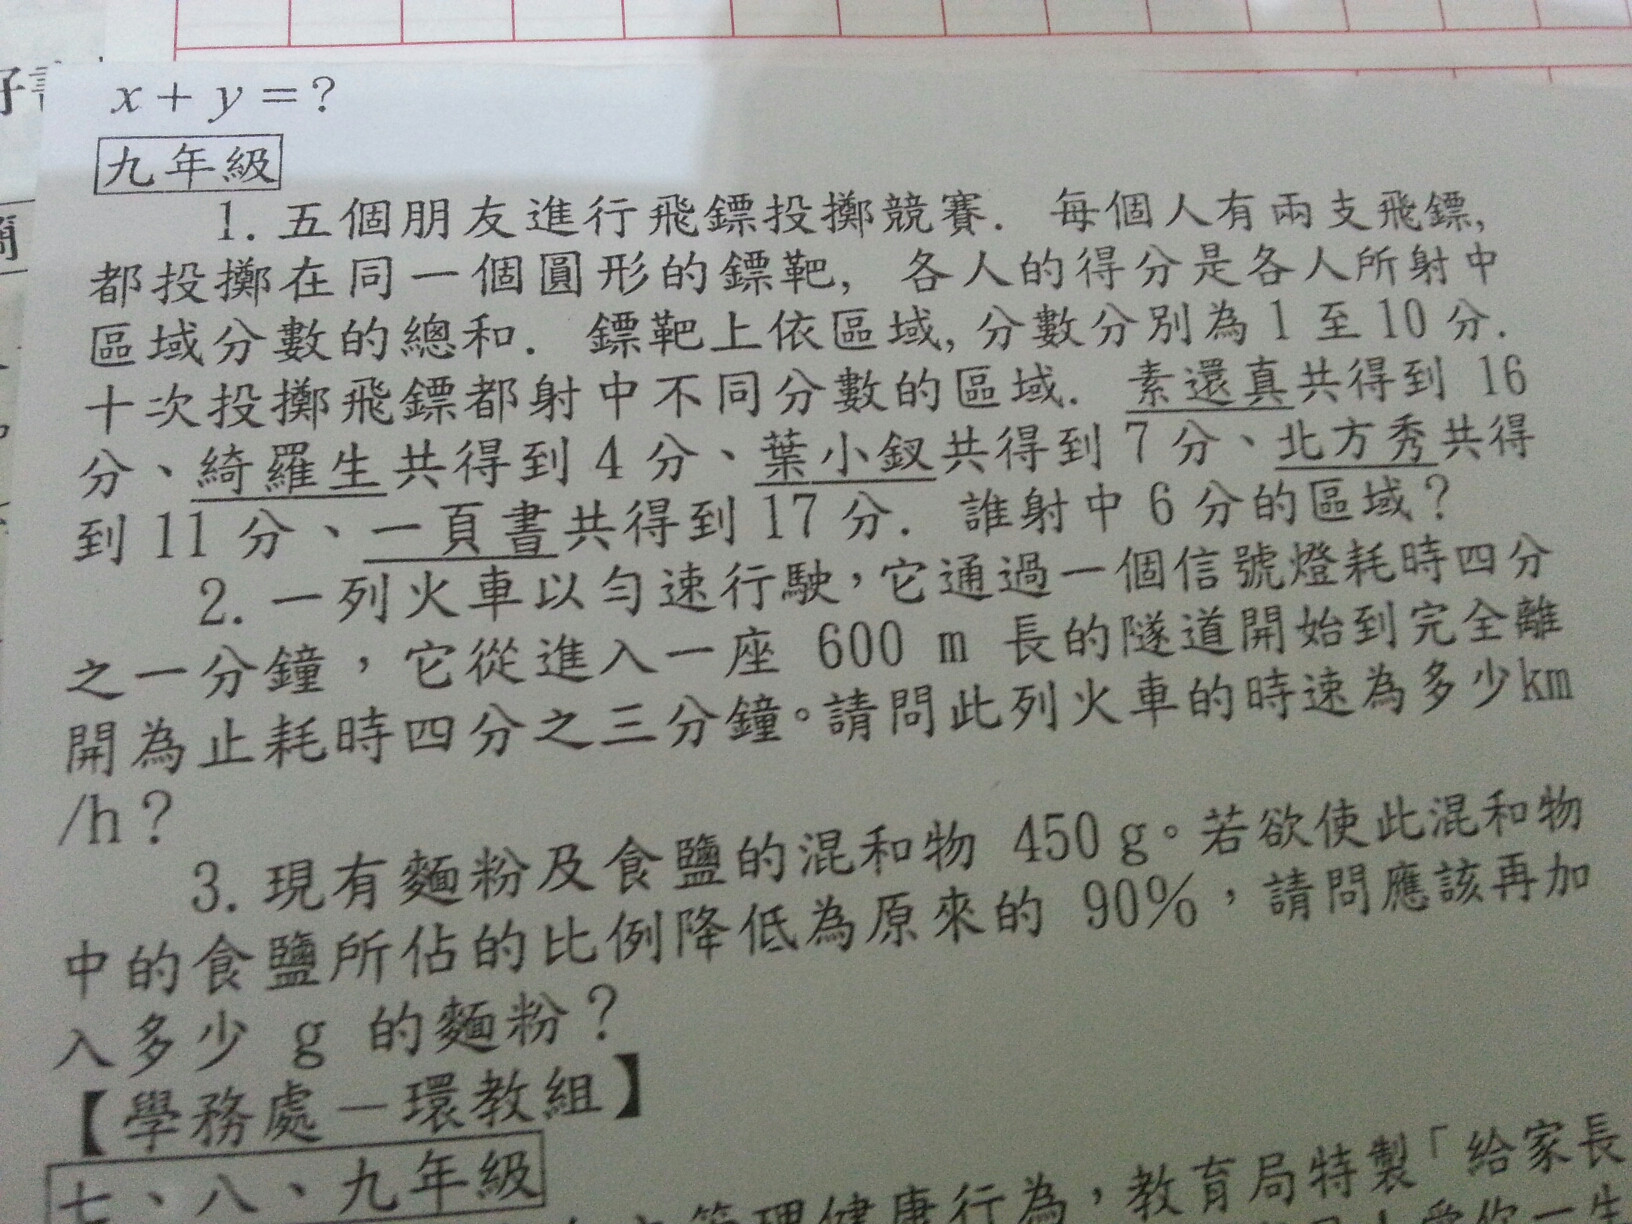 x + y = ?
九年級
1. 五個朋友進行飛鏢投擲競賽. 每個人有兩支飛鏢,
都投擲在同一個圓形的鏢靶, 各人的得分是各人所射中
區域分數的總和. 鏢靶上依區域, 分數分別為 1 至 10 分.
十次投擲飛鏢都射中不同分數的區域. 素還真共得到 16
分、綺羅生共得到 4 分、葉小釵共得到 7 分、北方秀共得
到 11 分、一頁書共得到 17 分. 誰射中 6 分的區域?
2. 一列火車以勻速行駛，它通過一個信號燈耗時四分
之一分鐘，它從進入一座 600 m 長的隧道開始到完全離
開為止耗時四分之三分鐘。請問此列火車的時速為多少km
/h?
3. 現有麵粉及食鹽的混和物 450 g。若欲使此混和物
中的食鹽所佔的比例降低為原來的 90%，請問應該再加
入多少 g 的麵粉?
【學務處－環教組】
七、八、九年級
管理健康行為，教育局特製「給家長